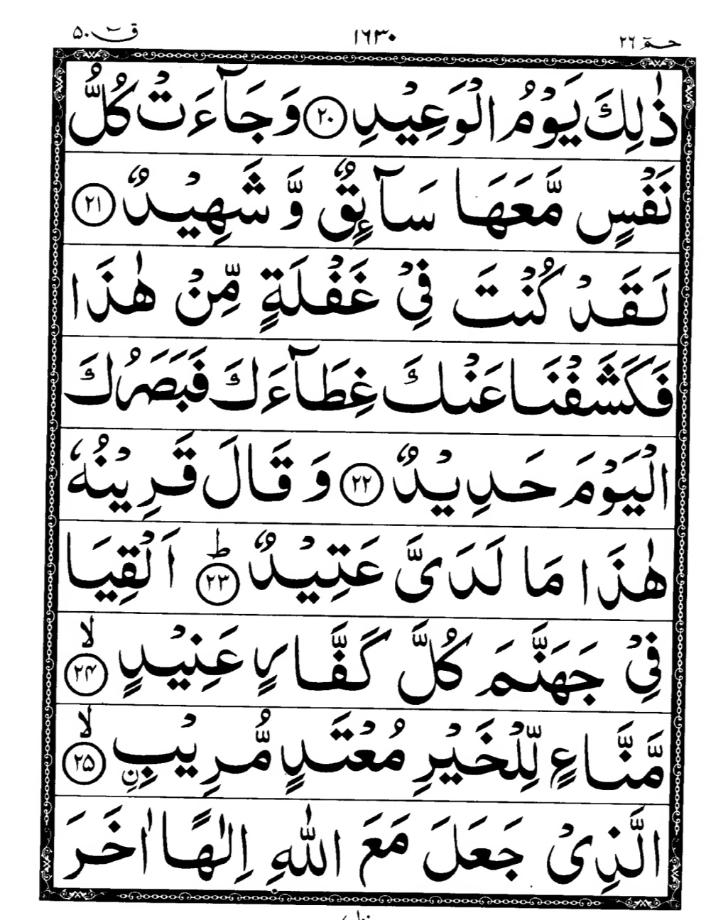 حٰمٓ ٢٦ ١٦٣٠ قٓ ٥٠
ذٰلِكَ يَوْمُ الْوَعِيْدِ ﴿۲۰﴾ وَجَآءَتْ كُلُّ
نَفْسٍ مَّعَهَا سَآئِقٌ وَّ شَهِيْدٌ ﴿۲۱﴾
لَقَدْ كُنْتَ فِيْ غَفْلَةٍ مِّنْ هٰذَا
فَكَشَفْنَا عَنْكَ غِطَآءَكَ فَبَصَرُكَ
الْيَوْمَ حَدِيْدٌ ﴿۲۲﴾ وَ قَالَ قَرِيْنُهٗ
هٰذَا مَا لَدَىَّ عَتِيْدٌ ؕ﴿۲۳﴾ اَلْقِيَا
فِيْ جَهَنَّمَ كُلَّ كَفَّارٍ عَنِيْدٍ ۙ﴿۲۴﴾
مَّنَّاعٍ لِّلْخَيْرِ مُعْتَدٍ مُّرِيْبِ ۙ﴿۲۵﴾
الَّذِىْ جَعَلَ مَعَ اللّٰهِ اِلٰهًا اٰخَرَ